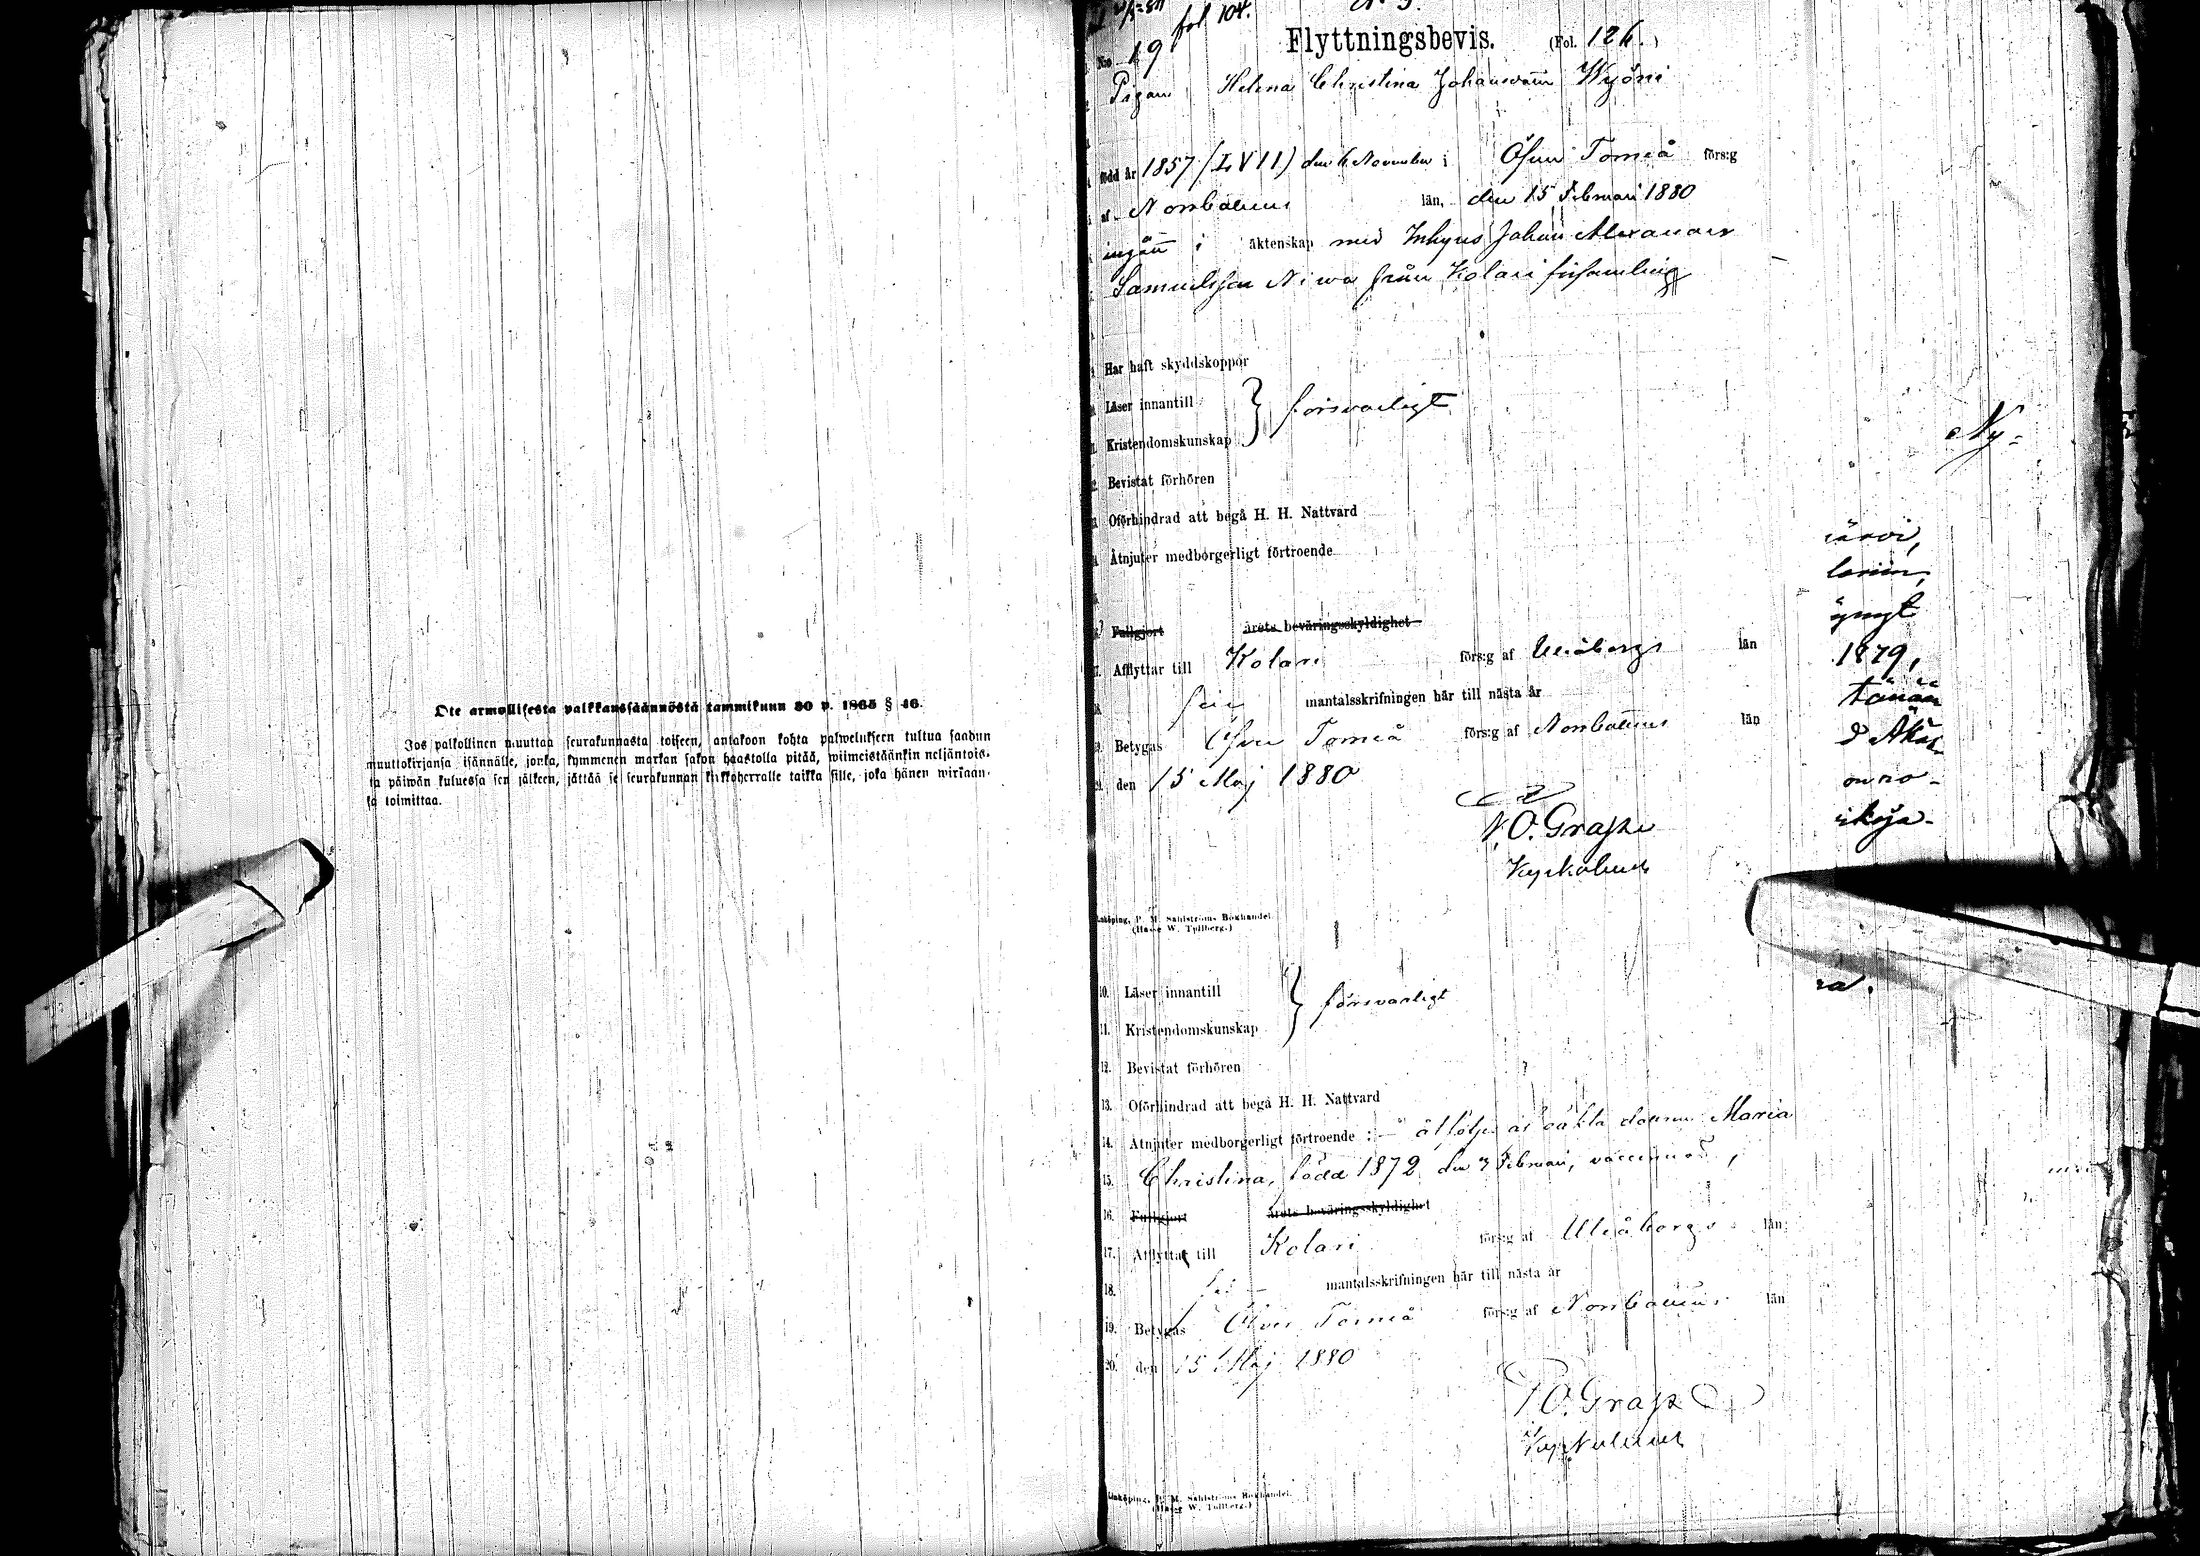 Ote armollisesta palkkaussäännöstä tammikuun 30 p. 1865 § 46.
Jos palkollinen muuttaa seurakunnasta toiseen, antakoon kohta palwelukseen tultua saadun
muuttokirjansa isännälle, jonka, kymmenen markan sakon haastolla pitää, wiimeistäänkin neljäntois-
ta päiwän kuluessa sen jälkeen, jättää se seurakunnan kirkkoherralle taikka sille, joka hänen wirkaan-
sa toimittaa.
fol 104.
N:o 19 Flyttningsbevis. (Fol. 126.)
Pigan Helena Christina Johansdotter Wyöni
född år 1857 (LVII) den 6 November i Öfver Torneå förs:g
af Norrbottens län, den 15 Februari 1880
ingått i äktenskap med Inhyses Johan Alexander
Samuelsson Niwa från Kolari församling
Har haft skyddskoppor
Läser innantill
försvarligt
Kristendomskunskap
Bevistat förhören
Oförhindrad att begå H. H. Nattvard
Åtnjuter medborgerligt förtroende
Fullgjort årets beväringsskyldighet
Afflyttar till Kolari förs:g af Uleåborgs län
mantalsskrifningen här till nästa år
Betygas Öfver Torneå förs:g af Norrbottens län
den 15 Maj 1880
P. O. Grape
Kyrkoherde
Linköping, P. M. Sahlströms Bokhandel.
(Hasse W. Tullberg.)
10. Läser innantill
försvarligt
11. Kristendomskunskap
12. Bevistat förhören
13. Oförhindrad att begå H. H. Nattvard
14. Åtnjuter medborgerligt förtroende :- åtföljes af oäkta dottern Maria
15. Christina, född 1872 den 3 Februari, vaccinerad,
16. Fullgjort årets beväringsskyldighet
17. Afflyttar till Kolari förs:g af Uleåborgs län
18. mantalsskrifningen här till nästa år
19. Betygas Öfver Torneå förs:g af Norrbottens län
20. den 15 Maj 1880
P. O. Grape
Kyrkoherde
Linköping, P. M. Sahlströms Bokhandel.
(Hasse W. Tullberg.)
Ny-
järvi,
1879,
tänään